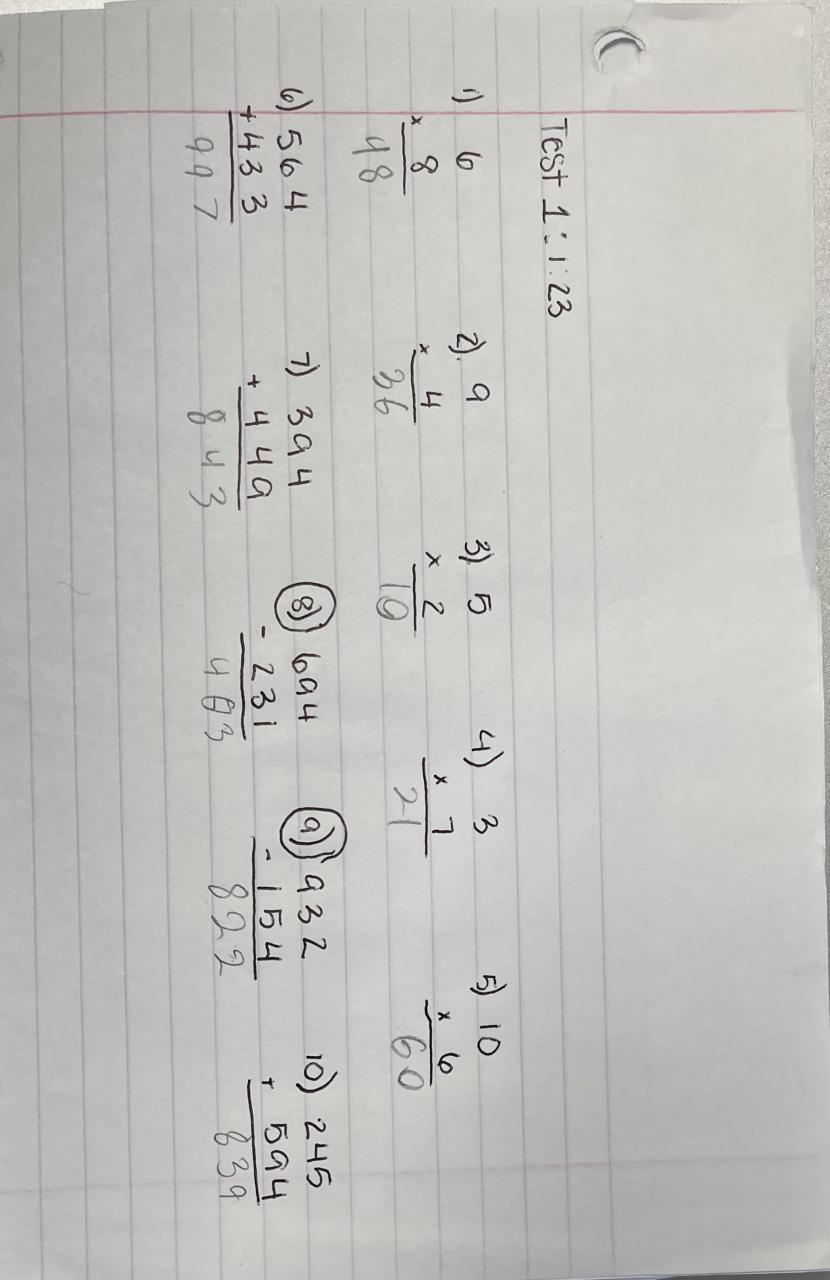 Test 1:1:23
1) 6 2). 9 3) 5 4) 3 5) 10
x 8 x 4 x 2 x 7 x 6
48 36 10 21 60
6) 564 7) 394 8) 694 9) 932 10) 245
+433 + 449 - 231 - 154 + 594
997 843 403 822 839